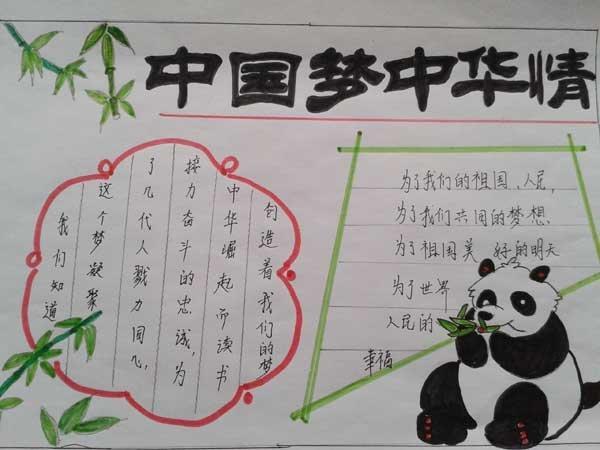 中国梦中华情
我们知道
这个梦凝聚
了几代人戮力同心，
接力奋斗的忠诚，为
中华崛起而读书
创造着我们的梦
为了我们的祖国、人民，
为了我们共同的梦想
为了祖国美 好的明天
为了世界
人民的
幸福